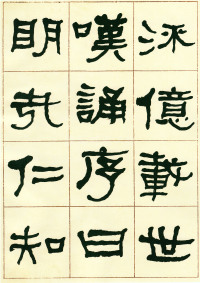 流億載世
嘆誦序曰
明哉仁知